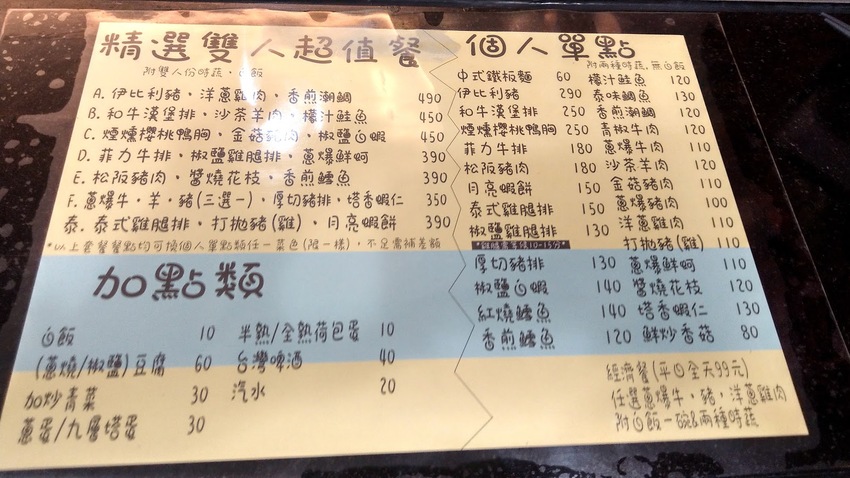 精選雙人超值餐
附雙人份時蔬、白飯
A. 伊比利豬、洋蔥雞肉、香煎潮鯛 490
B. 和牛漢堡排、沙茶羊肉、檬汁鮭魚 450
C. 煙燻櫻桃鴨胸、金菇豬肉、椒鹽白蝦 450
D. 菲力牛排、椒鹽雞腿排、蔥爆鮮蚵 390
E. 松阪豬肉、醬燒花枝、香煎鱈魚 390
F. 蔥爆牛.羊.豬(三選一)、厚切豬排、塔香蝦仁 350
泰. 泰式雞腿排、打拋豬(雞)、月亮蝦餅 390
*以上套餐餐點均可換個人單點類任一菜色(限一樣)，不足需補差額
加點類
白飯 10
(蔥燒/椒鹽)豆腐 60
加炒青菜 30
蔥蛋/九層塔蛋 30
半熟/全熟荷包蛋 10
台灣啤酒 40
汽水 20
個人單點
附兩種時蔬,無白飯
中式鐵板麵 60
伊比利豬 290
和牛漢堡排 250
煙燻櫻桃鴨胸 250
菲力牛排 180
松阪豬肉 180
月亮蝦餅 150
泰式雞腿排 150
椒鹽雞腿排 130
*雞腿需等候10-15分*
厚切豬排 130
椒鹽白蝦 140
紅燒鱈魚 140
香煎鱈魚 120
檬汁鮭魚 120
泰味鯛魚 130
香煎潮鯛 120
青椒牛肉 120
蔥爆牛肉 110
沙茶羊肉 120
金菇豬肉 110
蔥爆豬肉 100
洋蔥雞肉 110
打拋豬(雞) 110
蔥爆鮮蚵 110
醬燒花枝 120
塔香蝦仁 130
鮮炒香菇 80
經濟餐(平日全天99元)
任選蔥爆牛，豬，洋蔥雞肉
附白飯一碗&兩種時蔬